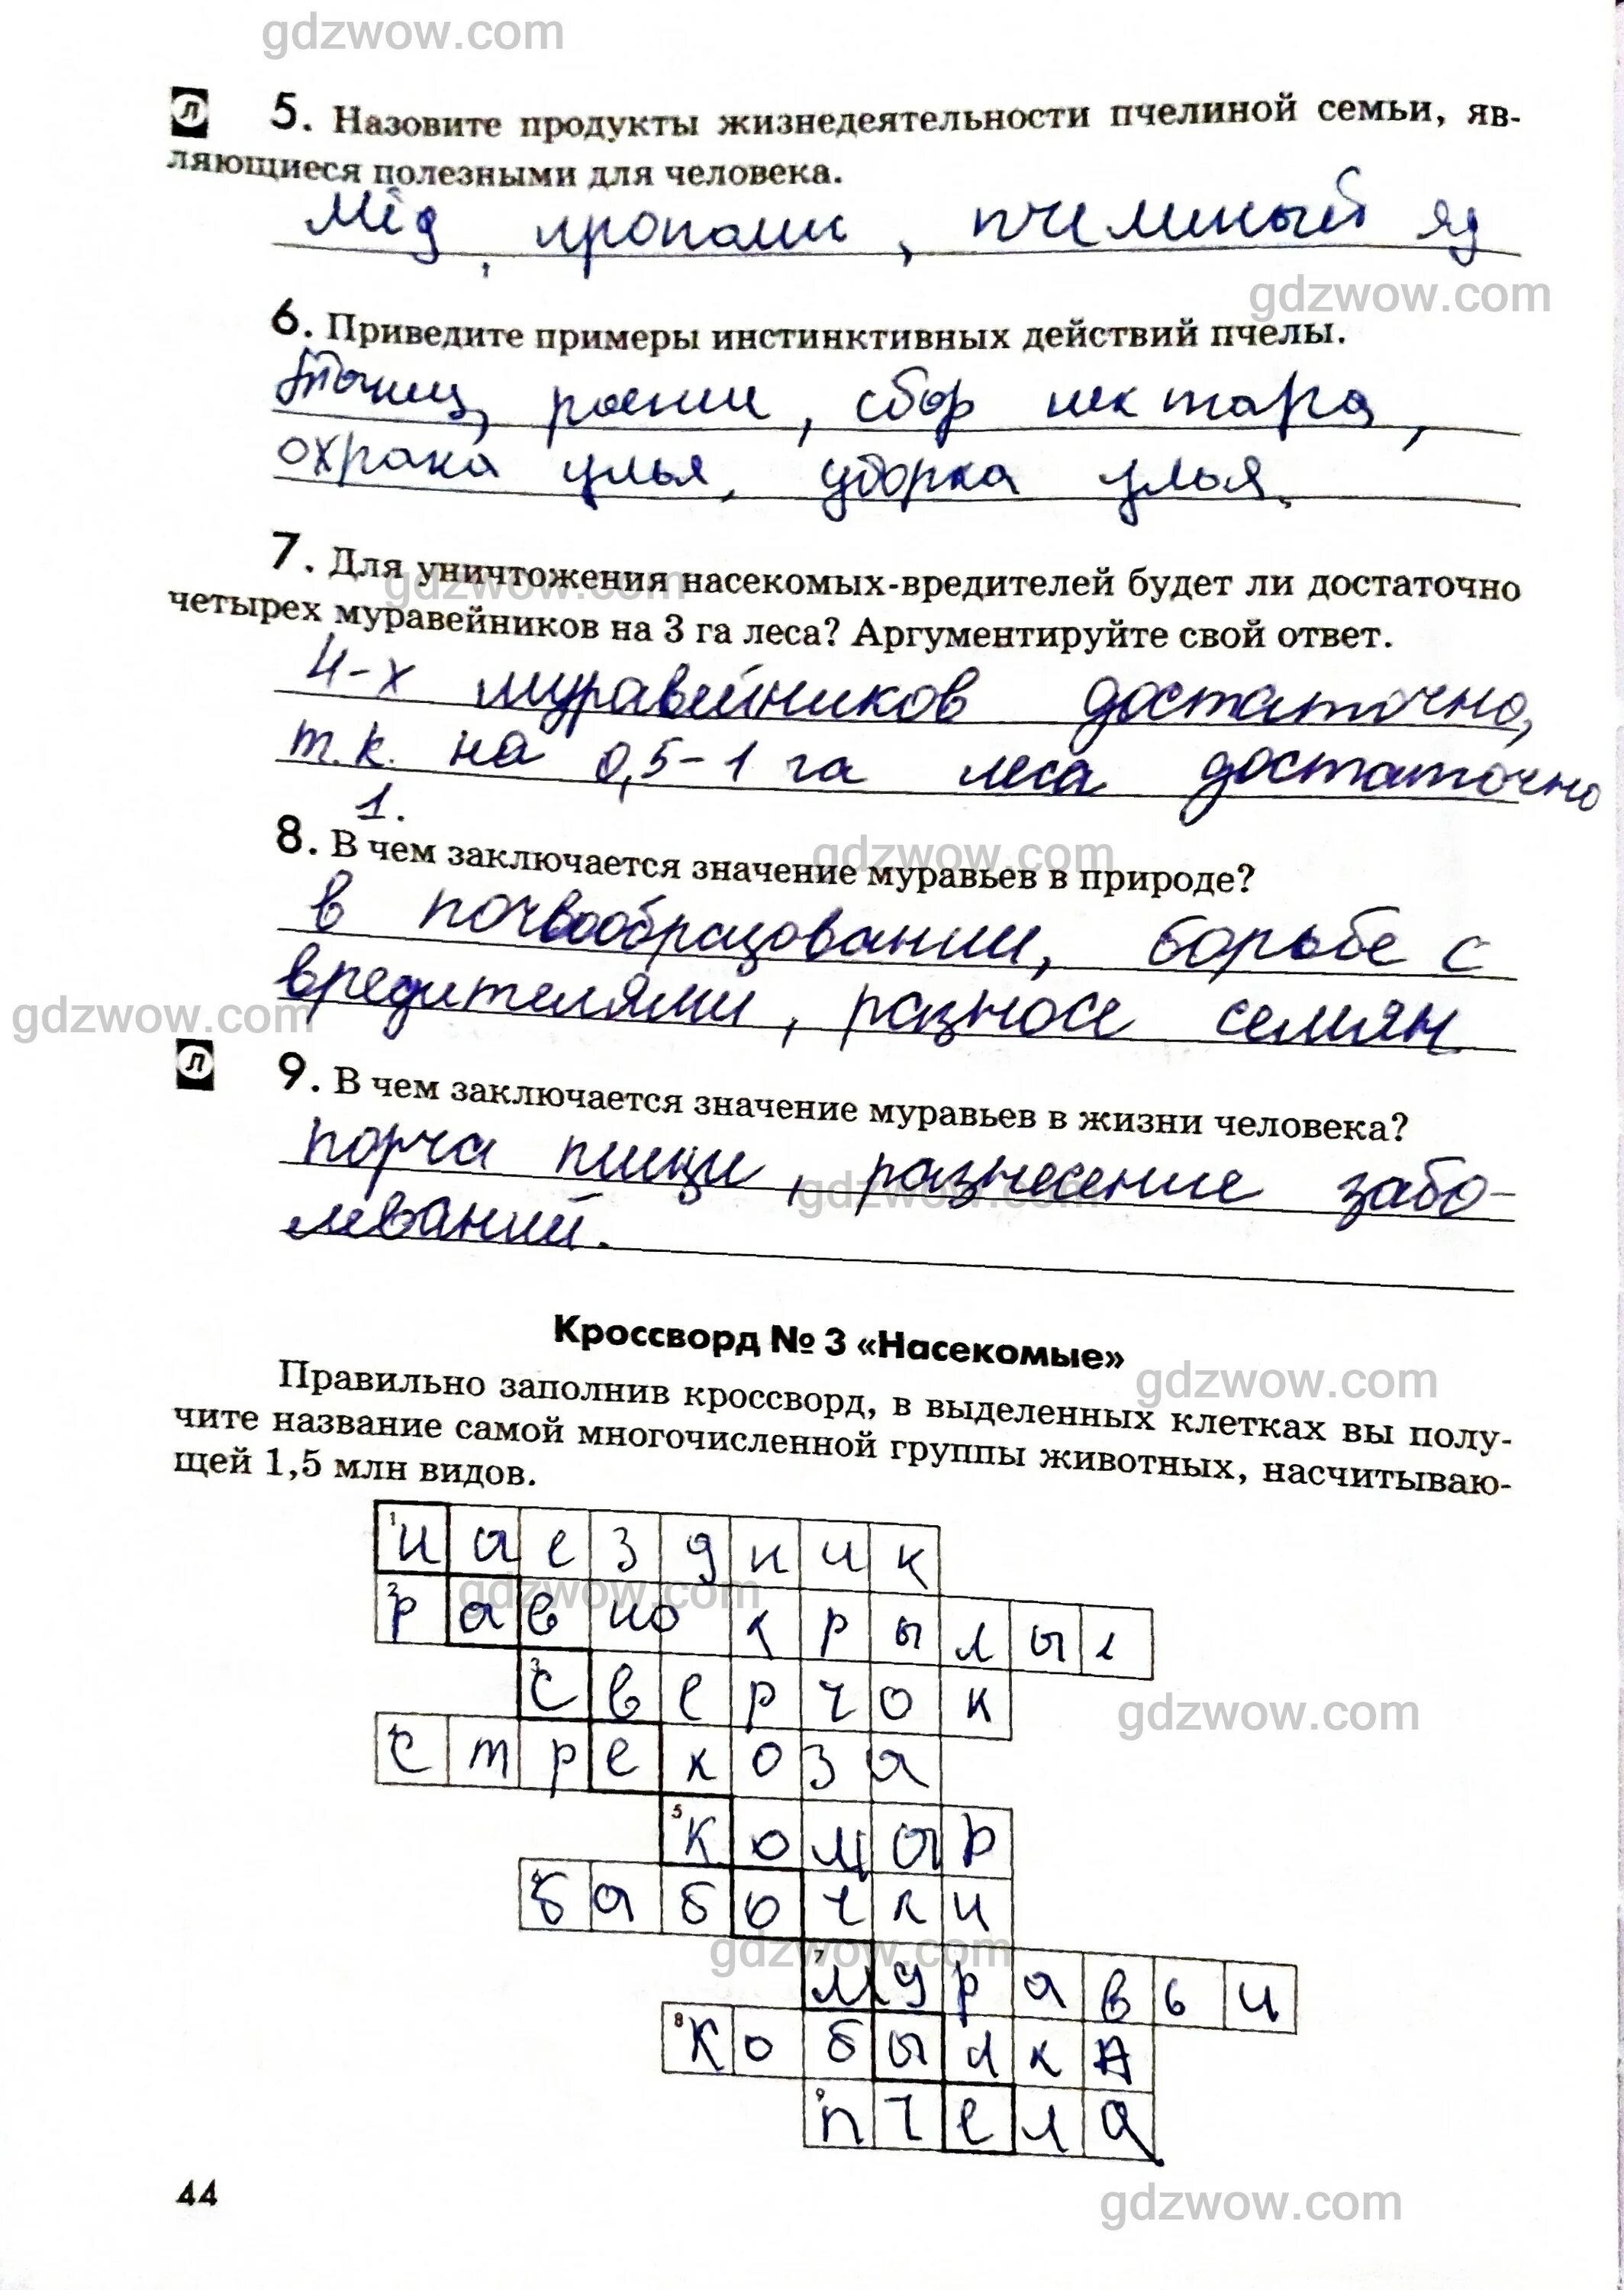 gdzwow.com
Л 5. Назовите продукты жизнедеятельности пчелиной семьи, яв-
ляющиеся полезными для человека.
мёд, прополис, пчелиный яд
gdzwow.com
6. Приведите примеры инстинктивных действий пчелы.
роение, сбор нектара,
охрана улья, уборка улья.
7. Для уничтожения насекомых-вредителей будет ли достаточно
gdzwow.com
четырех муравейников на 3 га леса? Аргументируйте свой ответ.
4-х муравейников достаточно,
т.к. на 0,5-1 га леса достаточно
1.
8. В чем заключается значение муравьев в природе?
gdzwow.com
в почвообразовании, борьбе с
вредителями, разносе семян
gdzwow.com
Л 9. В чем заключается значение муравьев в жизни человека?
порча пищи, разнесение забо-
gdzwow.com
леваний.
Кроссворд № 3 «Насекомые»
gdzwow.com
Правильно заполнив кроссворд, в выделенных клетках вы полу-
чите название самой многочисленной группы животных, насчитываю-
щей 1,5 млн видов.
1 наездник
gdzwow.com
2 равнокрылые
3 сверчок
gdzwow.com
стрекоза
5 комар
бабочки
gdzwow.com
7 муравьи
8 кобылкА
9 пчела
44
gdzwow.com